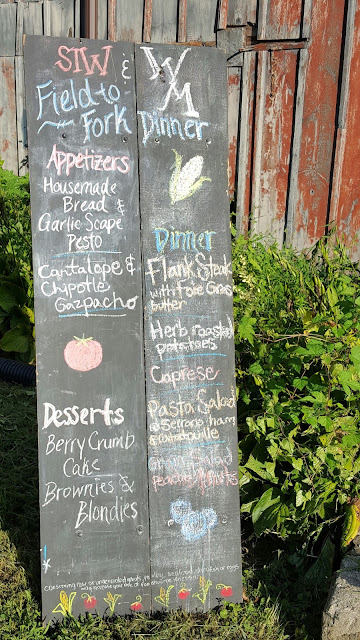 STW & WM
Field to Fork
Dinner
Appetizers
Housemade
Bread &
Garlic Scape
Pesto
Cantalope &
Chipotle
Gazpacho
Desserts
Berry Crumb
Cake
Brownies &
Blondies
Dinner
Flank Steak
with Foie Gras
butter
Herb roasted
potatoes
Caprese
Pasta Salad
Serrano ham
Salad